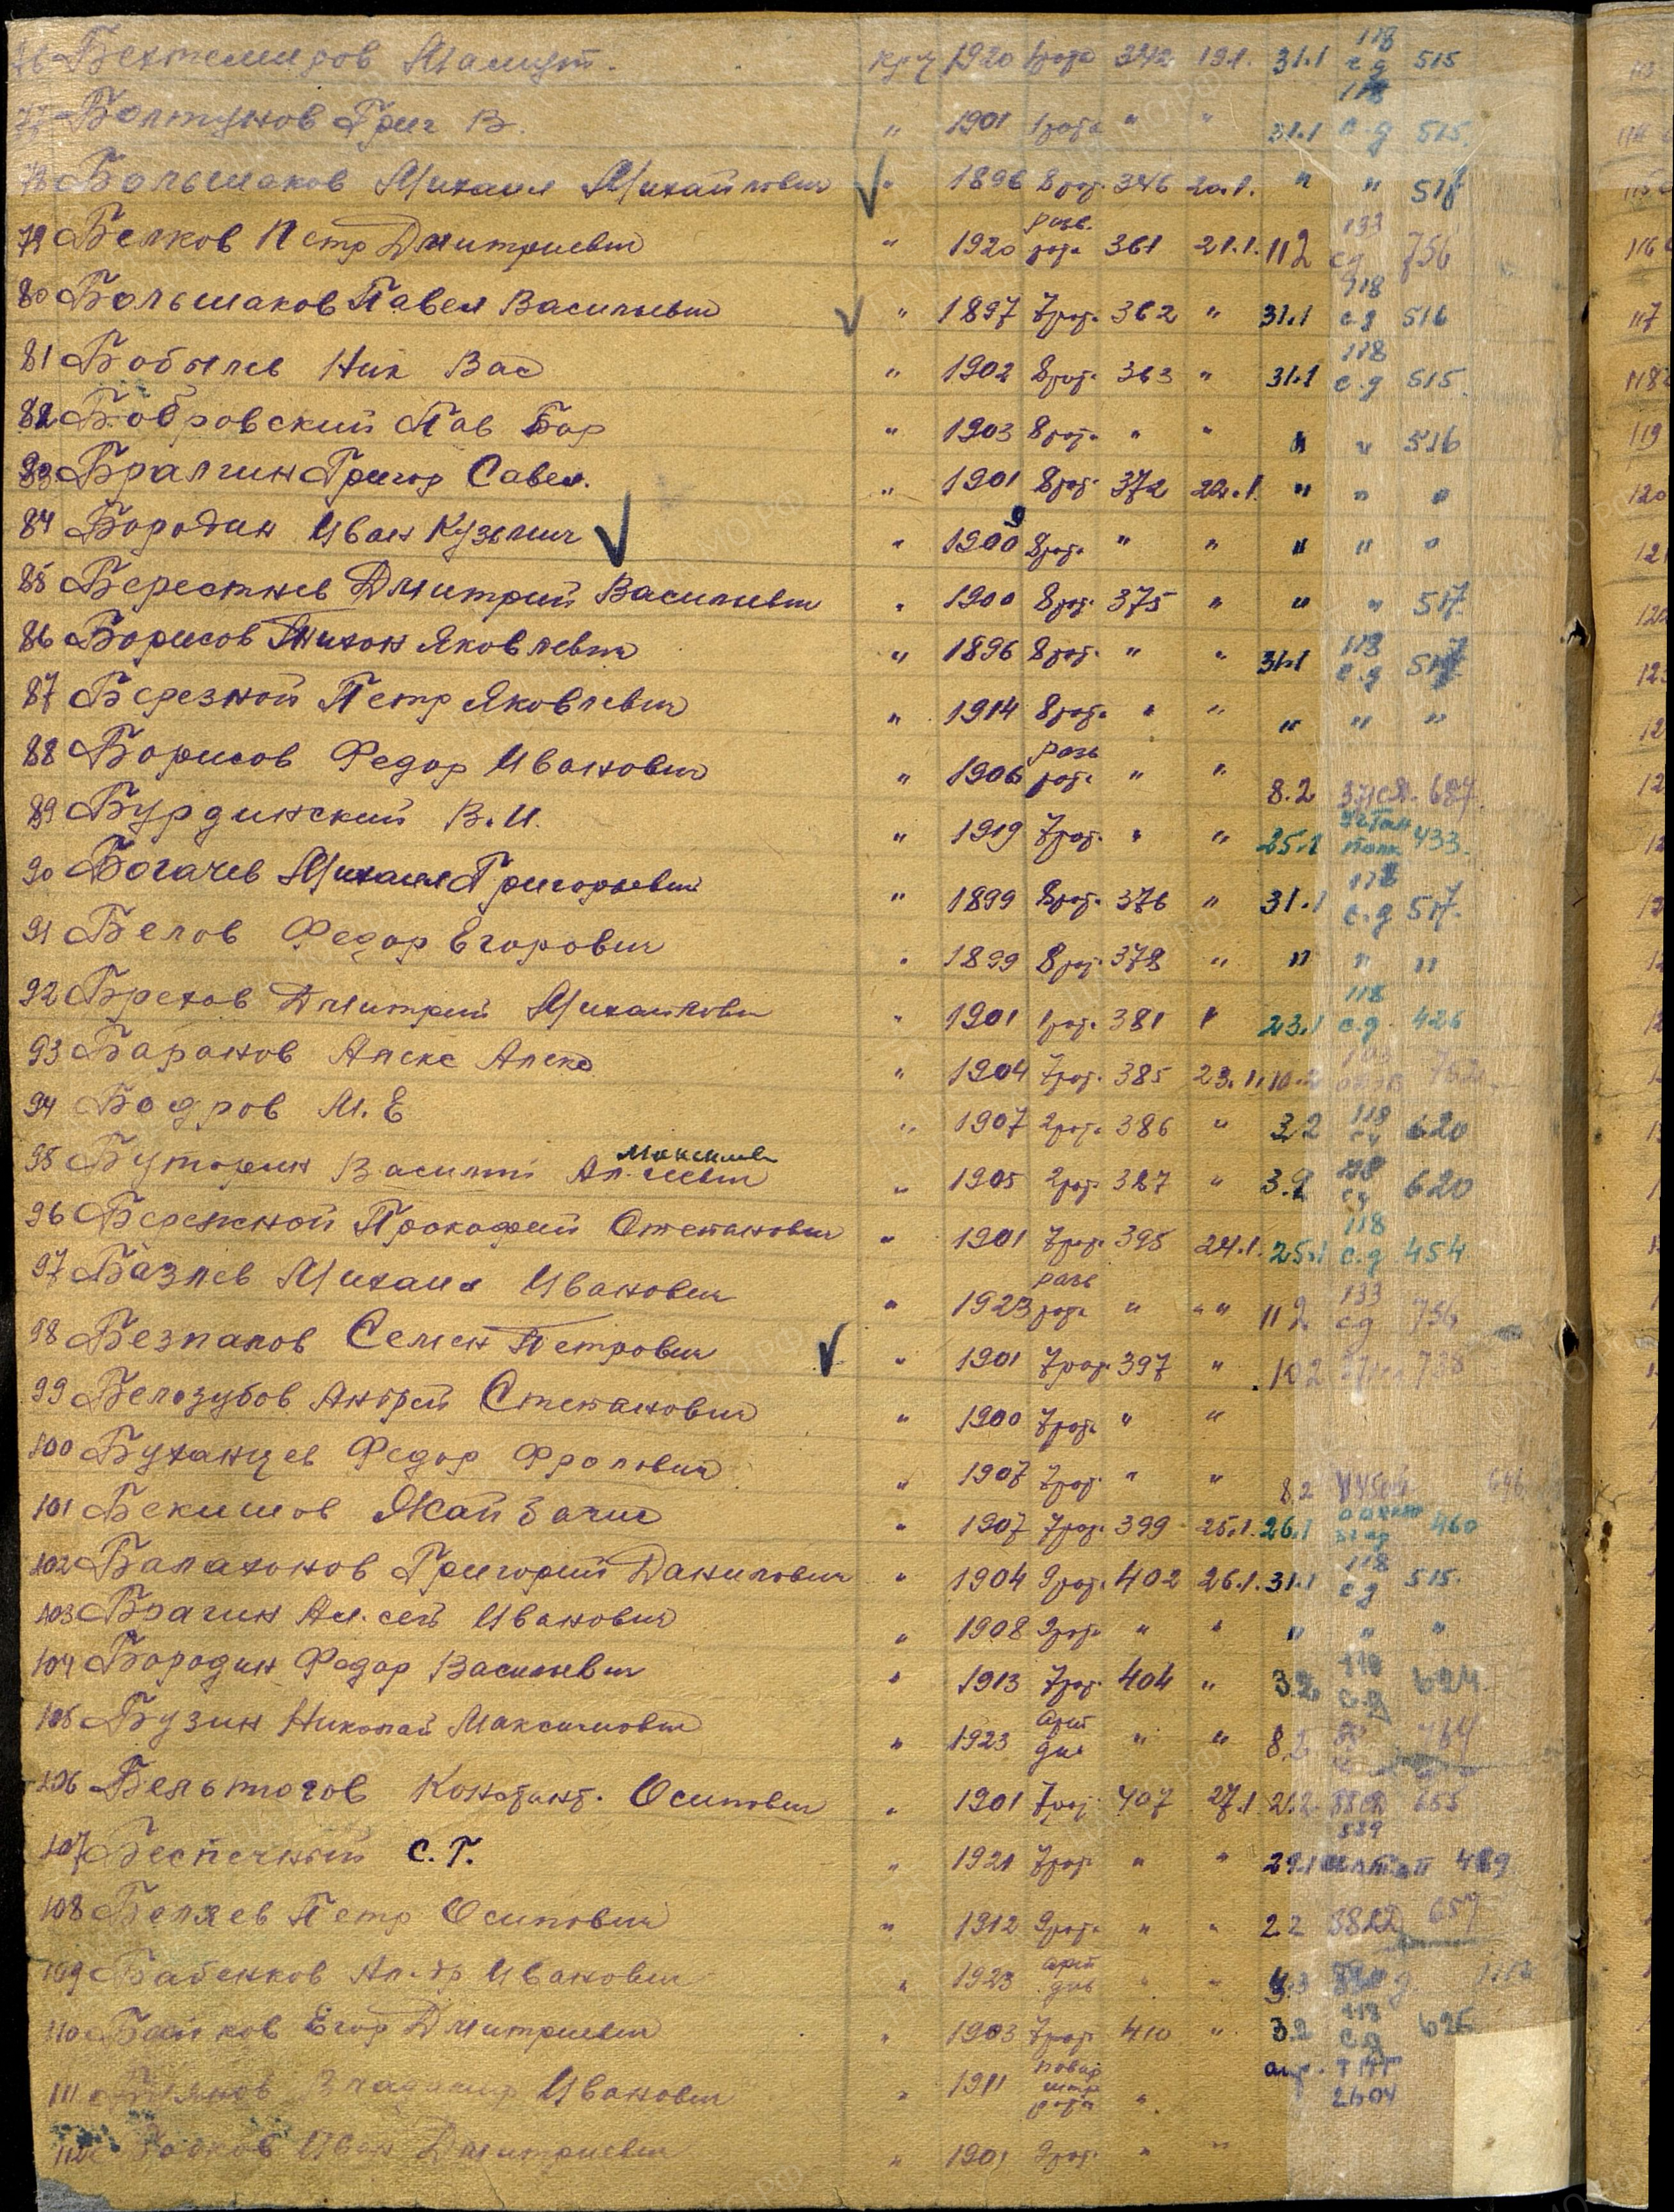 76 Бехтемиров Мамут. кр-ц 1920 1рота 342 19.1. 31.1 118 с.д 515
77 Болтунов Григ В. " 1901 1рота " " 31.1 118 с.д 515.
78 Большаков Михаил Михайлович " 1896 8рот. 346 20.1. " " 517
79 Белков Петр Дмитриевич " 1920 разв. рота 361 21.1. 11.2 133 сд 756
80 Большаков Павел Васильевич " 1897 7рот. 362 " 31.1 118 с.д 516
81 Бобылев Ник Вас " 1902 8рот. 363 " 31.1 118 с.д 515.
82 Бобровский Пав Бор " 1903 8рот. " " " " 516
83 Бралгин Григор Савел. " 1901 8рот. 372 22.1. " " "
84 Бородин Иван Кузьмич " 1900 9 8рот. " " " " "
85 Берестнев Дмитрий Васильевич " 1900 8рот. 375 " " " 517
86 Борисов Тихон Яковлевич " 1896 8рот. " " 31.1 118 с.д 517
87 Березной Петр Яковлевич " 1914 8рот. " " " " "
88 Борисов Федор Иванович " 1906 разв рота " " 8.2 687.
89 Бурдинский В.И. " 1919 7рот. " " 25.1 433.
90 Богачев Михаил Григорьевич " 1899 8рот. 376 " 31.1 118 с.д 517.
91 Белов Федор Егорович " 1899 8рот. 378 " " " "
92 Брехов Дмитрий Михайлович " 1901 1рот. 381 " 23.1 118 с.д. 426
93 Баранов Алекс Алекс " 1904 7рот. 385 23.1. 10.2
94 Бодров М.Е " 1907 2рота 386 " 3.2 118 сд 620
95 Буторин Василий Ал-еевич Максимов " 1905 2рот. 387 " 3.2 118 сд 620
96 Бережной Прокофий Степанович " 1901 7рот. 395 24.1. 25.1 118 с.д. 454
97 Базлев Михаил Иванович " 1923 разв рота " " " 11.2 133 сд 756
98 Безпалов Семен Петрович " 1901 7рот. 397 " 10.2 738
99 Белозубов Андрей Степанович " 1900 7рот. " "
100 Буханцев Федор Фролович " 1907 7рот. " " 8.2
101 Бекишов Жайзаши " 1907 7рот. 399 25.1. 26.1 460
102 Балахонов Григорий Данилович " 1904 9рот. 402 26.1. 31.1 118 сд 515.
103 Брагин Ал.сей Иванович " 1908 9рота " " " " "
104 Бородин Федор Васильевич " 1913 7рот. 404 " 3.2. 118 с.д 624.
105 Бузин Николай Максимович " 1923 Арт див " " 8.2
106 Бельтюгов Констант. Осипович " 1901 7рот. 407 27.1 2.2. 655
107 Беспечный С.Г. " 1921 7рот. " " 29.1 489
108 Беляев Петр Осипович " 1912 9рота " " 2.2 657
109 Бабенков Ал-др Иванович " 1923 арт див " "
110 Байков Егор Дмитриевич " 1903 7рот. 410 " 3.2 118 с.д 626
111 Владимир Иванович " 1911 рота " 2604
112 Иван Дмитриевич " 1901 9рот. " "